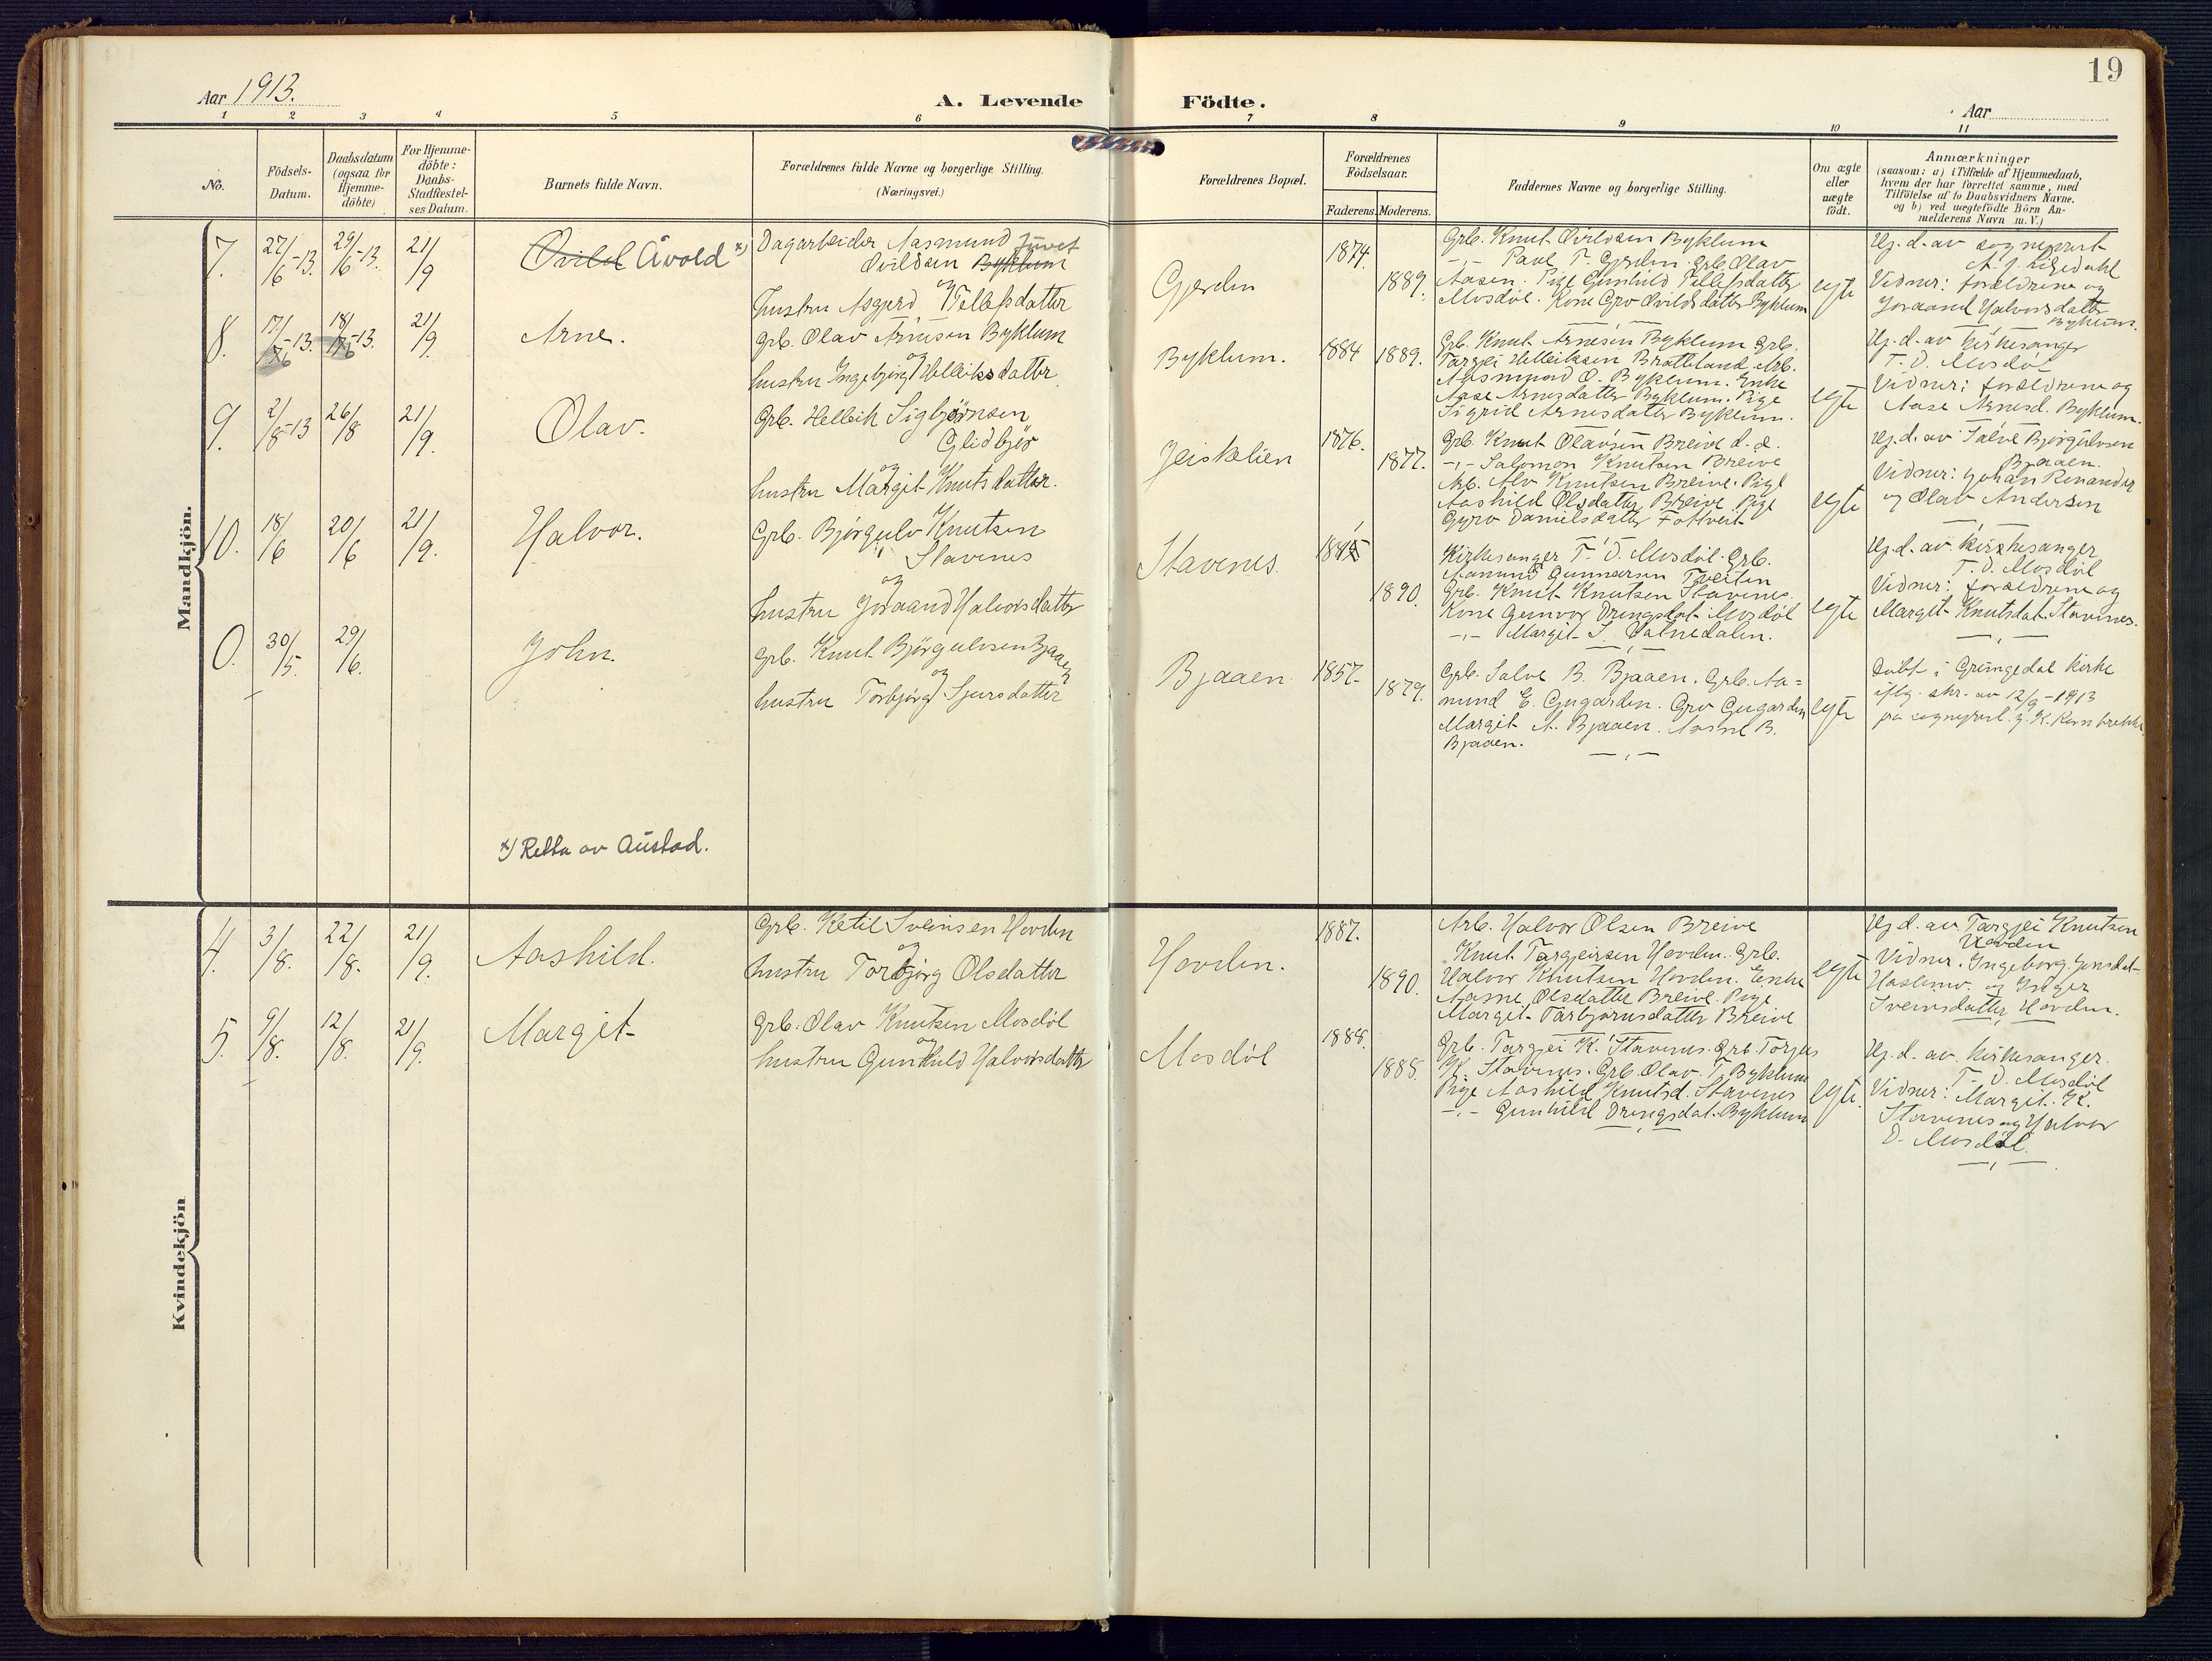 19
Aar 1913.
A. Levende
Födte.
Aar
1 2 3 4 5 6 7 8 9 10 11
No.
Födsels-
Datum.
Daabsdatum
(ogsaa for
Hjemme-
döbte)
For Hjemme-
döbte:
Daabs-
Stadfæstel-
ses Datum.
Barnets fulde Navn.
Forældrenes fulde Navne og borgerlige Stilling.
(Næringsvei.)
Forældrenes Bopæl.
Forældrenes
Födselsaar.
Faderens. Moderens.
Faddernes Navne og borgerlige Stilling.
Om ægte
eller
uægte
födt.
Anmærkninger
(saasom: a) i Tilfælde af Hjemmedaab,
hvem der har forrettet samme, med
Tilföielse af to Daabsvidners Navne,
og b) ved uægtefödte Börn An-
melderens Navn m. V.)
Mandkjön.
7. 27/6-13. 29/6-13. 21/9 Övild Åvold x)
Dagarbeider Aasmund Juvet
Øvildsen Byklum
og
hustru Asgjerd Tellefsdatter
Gjerden
1874.
1889.
Grb. Knut Øvildsen Byklum
-,- Paul T. Gjerden. Grb. Olav
Aasen. Pige Gunhild Tellefsdatter
Mosdøl. Kone Gro Øvildsdatter Byklum
egte
Hj. d. av sogneprest
Vidner: forældrene og
Joraand Halvorsdatter
Byklum.
8. 17/6-13. 18/6-13. 21/9. Arne.
Grb. Olav Arnesen Byklum
og
hustru Ingebjørg Helleiksdatter
Byklum.
1884 1889.
Grb. Knut Arnesen Byklum Grb.
Targjei Helleiksen Bratteland. Arb.
Aasmund O. Byklum. Enke
Aase Arnesdatter Byklum. Pige
Sigrid Arnesdatter Byklum.
egte
Hj. d. av kirkesanger
T. D. Mosdøl
Vidner: forældrene og
Aase Arnesd. Byklum.
9. 2/8-13 26/8 21/9. Olav.
Grb. Helleik Sigbjørnsen
Glidbjør
og
hustru Margit Knutsdatter.
Jeiskelien
1876.
1877.
Grb. Knut Olavsen Breive d. e.
-,- Salomon Knutsen Breive
Arb. Alv Knutsen Breive. Pige
Aashild Olsdatter Breive. Pige
Gyro Danielsdatter
egte
Hj. d. av Salve Bjørgulvsen
Bjaaen.
Vidner: Johan Renander
og Olav Andersen
10. 18/6 20/6 21/9. Halvor.
Grb. Bjørgulv Knutsen
Stavenes
og
hustru Joraand Halvorsdatter
Stavenes.
1890.
Kirkesanger T. D. Mosdøl. Grb.
Aamund Gunnarsen Tveiten
Grb. Knut Knutsen Stavenes.
Kone Gunvor Drengsdat. Mosdøl
-,- Margit S. Vatnedalen.
egte
Hj. d. av kirkesanger
T. D. Mosdøl
Vidner: forældrene og
Margit Knutsdat. Stavenes.
0. 30/5. 29/6. John.
Grb. Knut Bjørgulvsen Bjaaen
og
hustru Torbjørg Sjursdatter
Bjaaen.
1857.
1879.
Grb. Salve B. Bjaaen. Grb. Aa=
mund E. Gugarden. Gro Gugarden
Margit A. Bjaaen. Aasne B.
Bjaaen.
egte
Døbt i Grungedal kirke
iflg. skr. av 12/9-1913
fra sogneprest.
x) Retta av Austad.
Kvindekjön
4. 3/8. 22/8. 21/9. Aashild.
Grb. Ketil Sveinsen Hovden
og
hustru Torbjørg Olsdatter
Hovden.
1887.
1890.
Arb. Halvor Olsen Breive
Knut Targjeisen Hovden. Grb.
Halvor Knutsen Hovden. Enke
Aasne Olsdatter Breive. Pige
Margit Tarbjørnsdatter Breive
egte
Hj. d. av Targjei Knutsen
Hovden
Vidner. Ingeborg
og Inger
Sveinsdatter Hovden.
5. 9/8. 12/8. 21/9. Margit
Grb. Olav Knutsen Mosdøl
og
hustru Gunhild Halvorsdatter
Mosdøl
1885.
1888.
Grb. Targjei K. Stavenes. Grb. Torjus
K. Stavenes. Grb. Olav T. Byklum
Pige Aashild Knutsd. Stavenes
-,- Gunhild Drengsdat. Byklum
egte.
Hj. d. av kirkesanger
T. D. Mosdøl
Vidner: Margit K.
Stavenes og Halvor
D. Mosdøl.